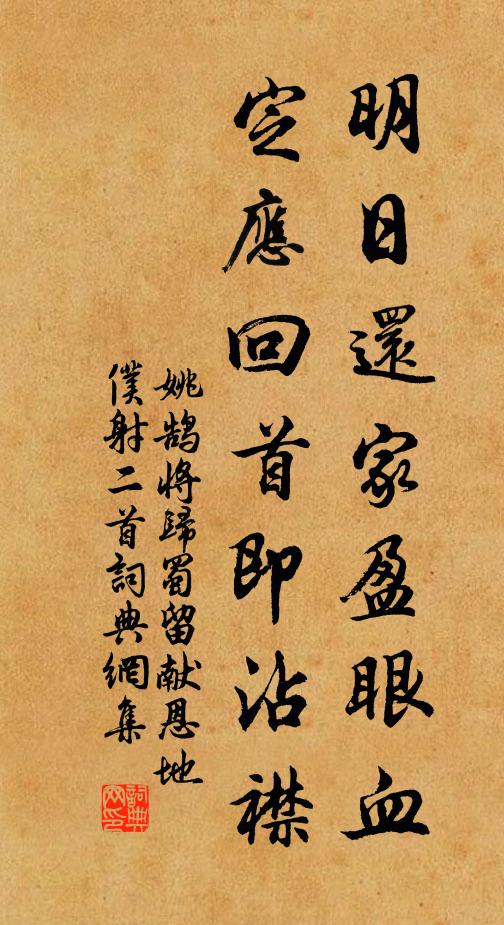 明日還家盈眼血
定應回首即沾襟
姚鹄將歸蜀留献恩地
僕射二首詞典網集